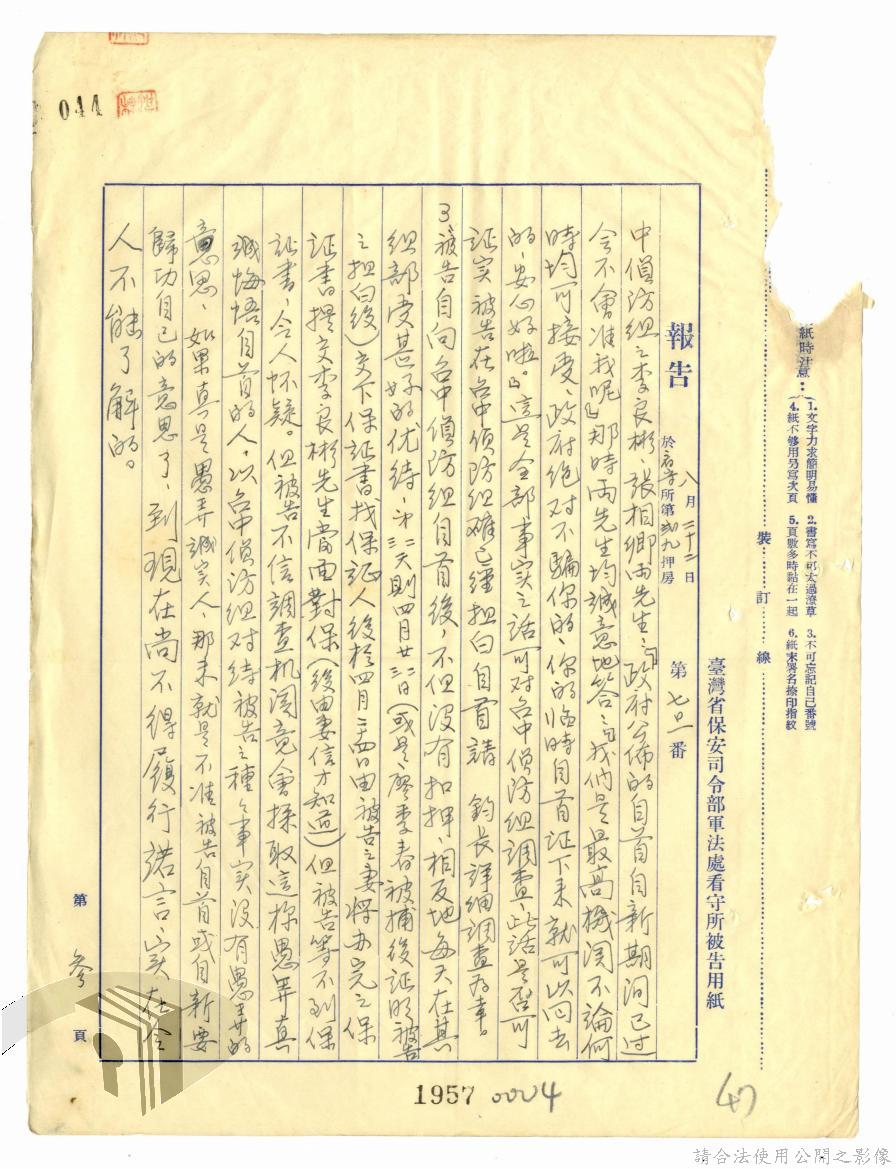 044
紙時注意：
1. 文字力求簡明易懂
2. 書寫不可太過潦草
3. 不可忘記自己番號
4. 紙不够用另寫次頁
5. 頁數多時黏在一起
6. 紙末署名捺印指紋
裝訂線
臺灣省保安司令部軍法處看守所被告用紙
報告
八月二十二日
於所第九押房
第七〇一番
中偵防組之李良彬、張相鄉兩先生：「政府公佈的自首自新期间已过
会不會准我呢」那時兩先生均誠意地答：「我们是最高機関不論何
時均可接受、政府绝对不騙你的、你的临時自首证下来就可以回去
的、安心好啦。」這是全部事实之話可对台中偵防组調查、此話是否可
证实被告在台中偵防组確已經担白自首請 鈞長詳细調查为幸。
3 被告自向台中偵防组自首後，不但没有扣押、相反地每天在其
组部受甚好的优待，第三天則四月廿三日（或是廖季春被捕後证明被告
之担白後）交下保证書找保证人後於四月二四日由被告之妻将办完之保
证書提交李良彬先生當面對保（後由妻信才知道）但被告等不到保
证書、令人怀疑。但被告不信調查机関竟會採取這样愚弄真
诚悔悟自首的人，以台中偵防组对待被告之種々事实没有愚弄的
意思、如果真是愚弄誠实人、那末就是不准被告自首或自新要
歸功自己的意思了，到現在尚不得履行諾言、实在令
人不能了解的。
第 参 頁
1957 0004
47
請合法使用公開之影像